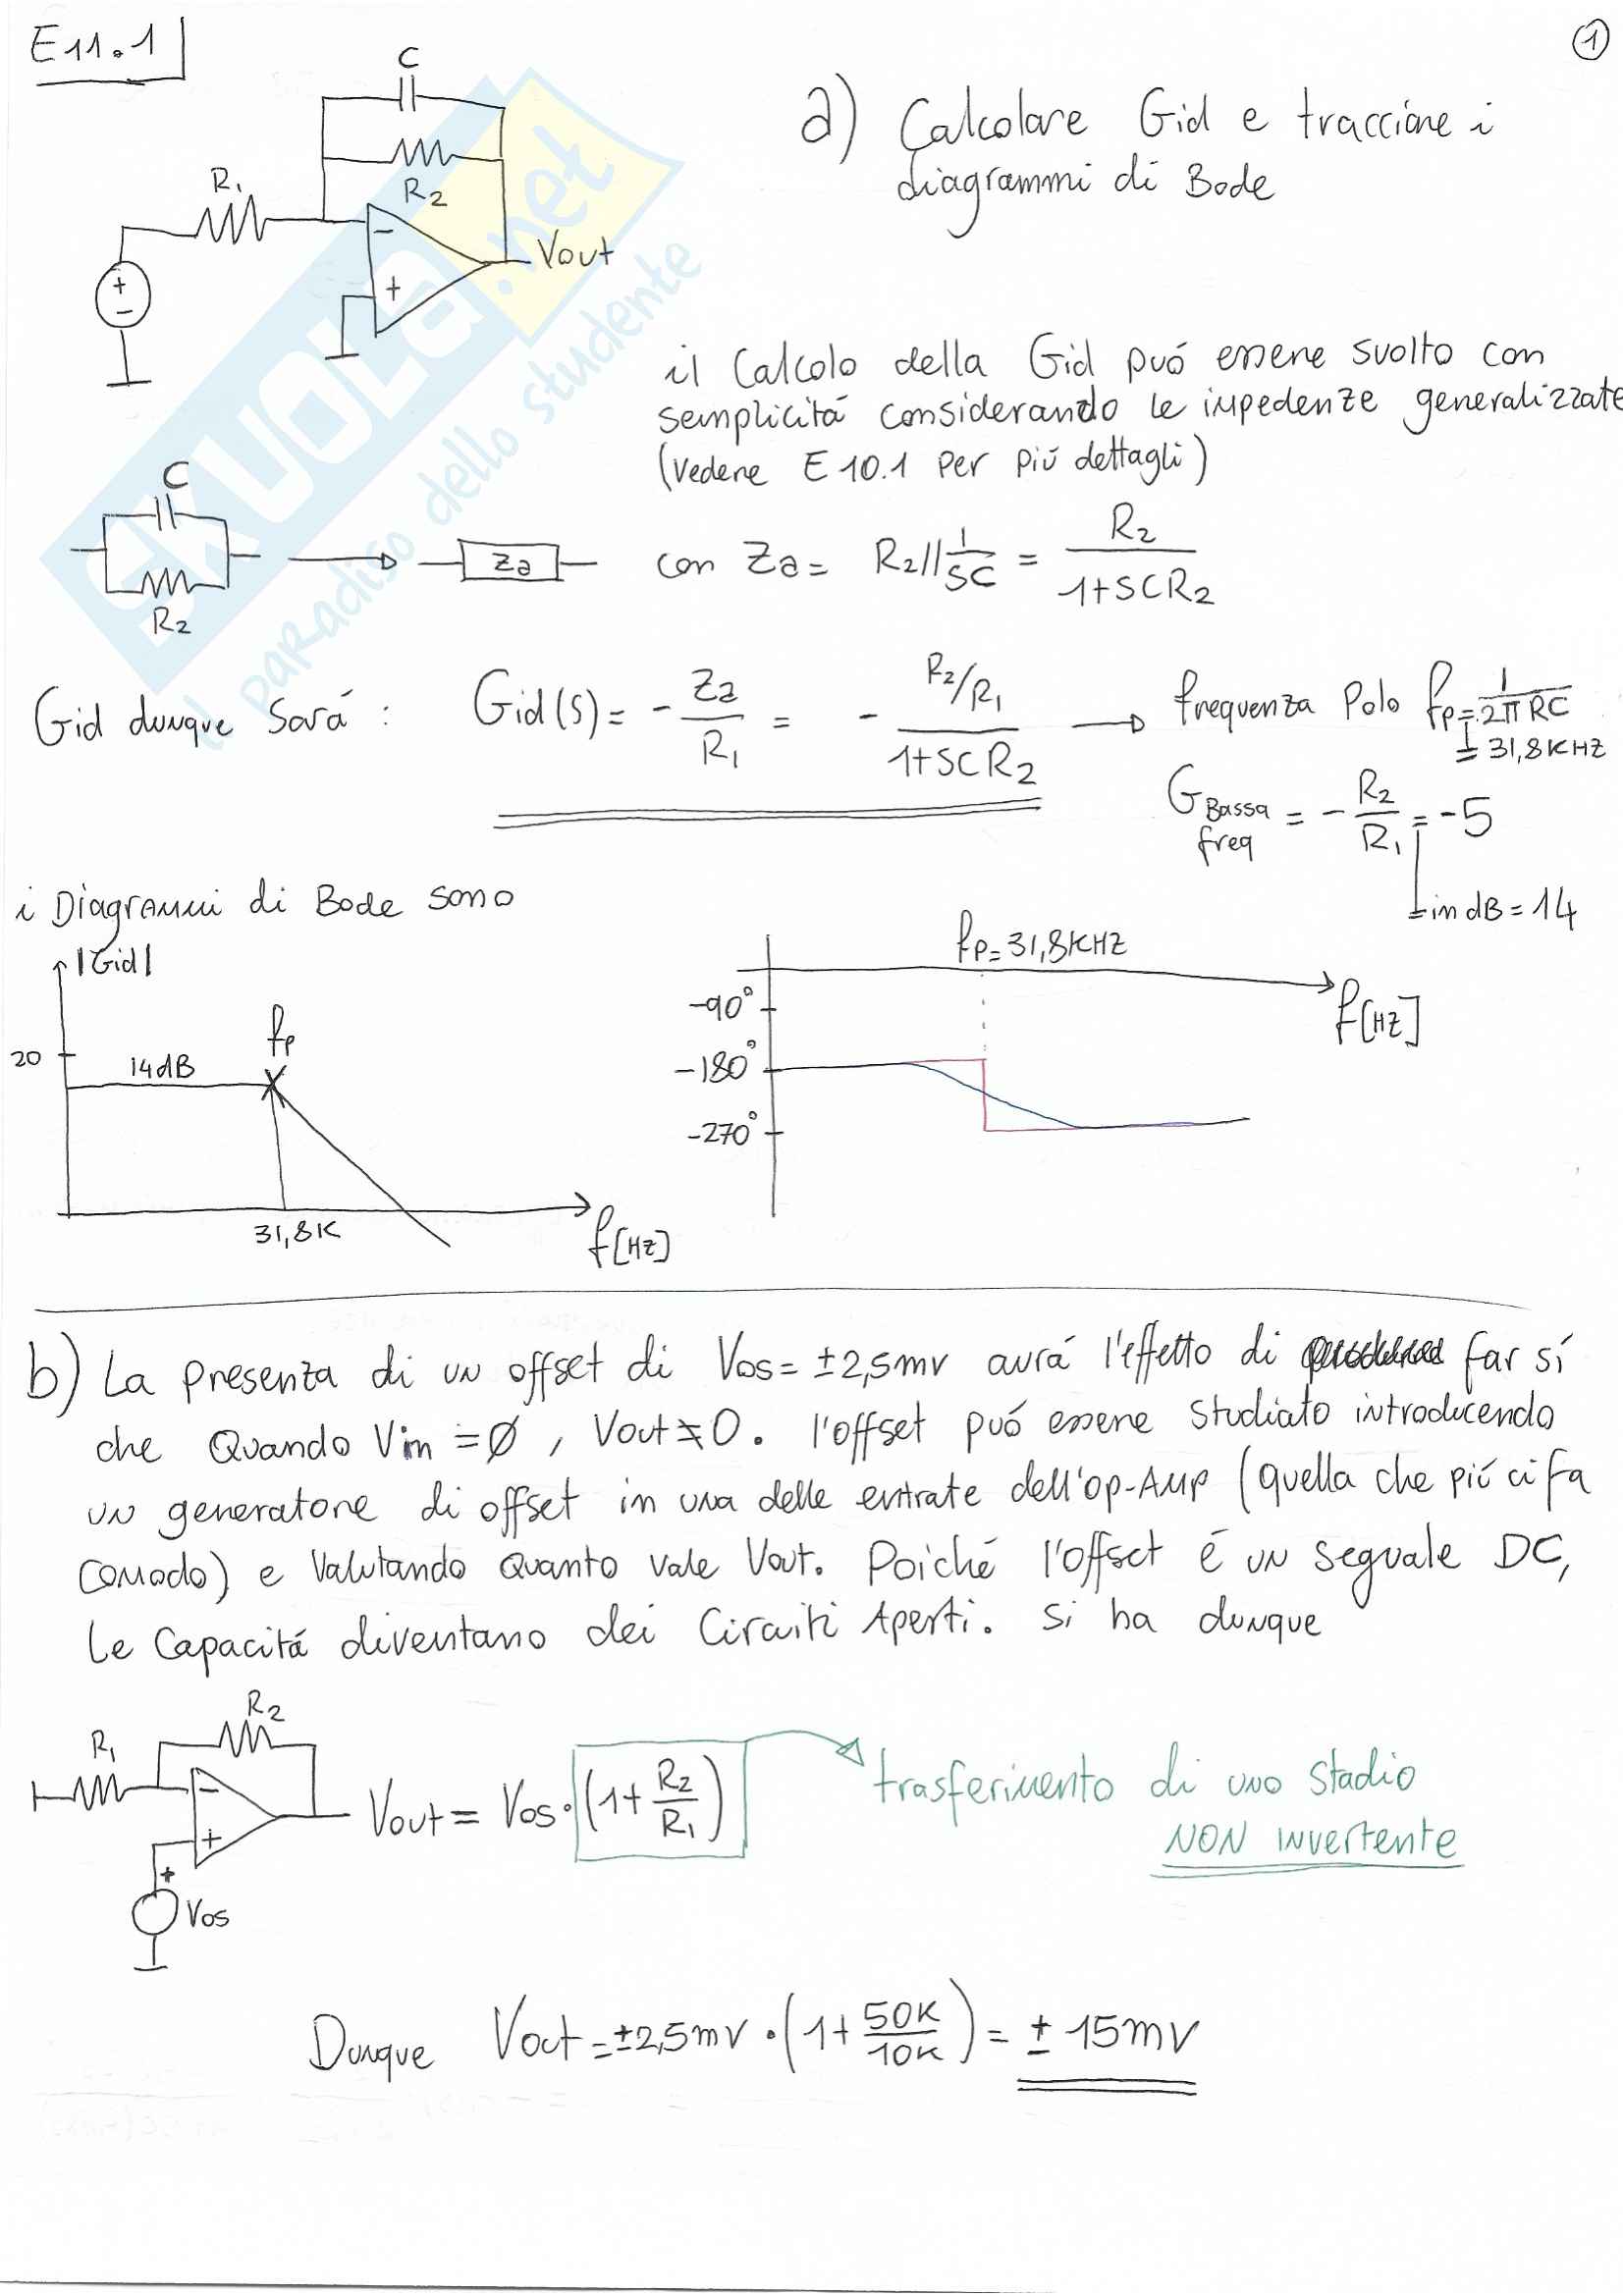 E11.1
1
C
R2
R1
+
-
-
+
Vout
a) Calcolare Gid e tracciare i
diagrammi di Bode
SKUOLa.net
il paradiso dello studente
il Calcolo della Gid puó essere svolto con
semplicitá considerando le impedenze generalizzate
(Vedere E10.1 per piú dettagli)
C
R2
Za
con Za = R2//1/SC = R2/(1+SCR2)
Gid dunque sará : Gid(S) = - Za/R1 = - (R2/R1)/(1+SCR2) → frequenza Polo fp = 1/2πRC
= 31,8KHZ
G Bassa freq = - R2/R1 = -5
in dB = 14
i Diagrammi di Bode sono
|Gid|
20
14dB
fp
31,8K
f[HZ]
fp = 31,8KHZ
-90°
-180°
-270°
f[HZ]
b) La presenza di un offset di Vos = ±2,5mV avrá l'effetto di far sí
che Quando Vin = Ø , Vout ≠ 0. l'offset puó essere studiato introducendo
un generatore di offset in una delle entrate dell'op-Amp (quella che piú ci fa
comodo) e Valutando Quanto vale Vout. Poiché l'offset é un segnale DC,
le Capacitá diventano dei Circuiti Aperti. Si ha dunque
R2
R1
-
+
+
Vos
Vout = Vos · (1 + R2/R1)
trasferimento di uno stadio
NON invertente
Dunque Vout = ±2,5mV · (1 + 50K/10K) = ± 15mV